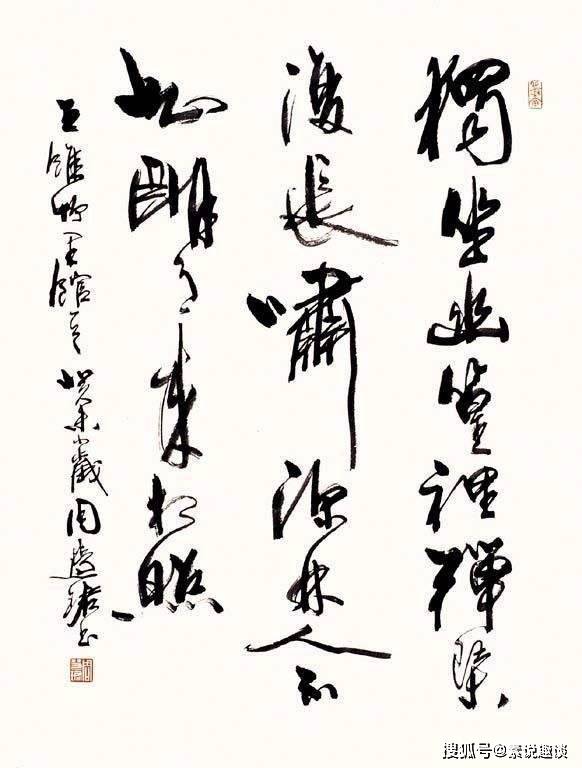 獨坐幽篁裡彈琴
復長嘯深林人不
知明月來相照
王維竹里館 癸未歲周慧珺書
搜狐号@素说趣谈